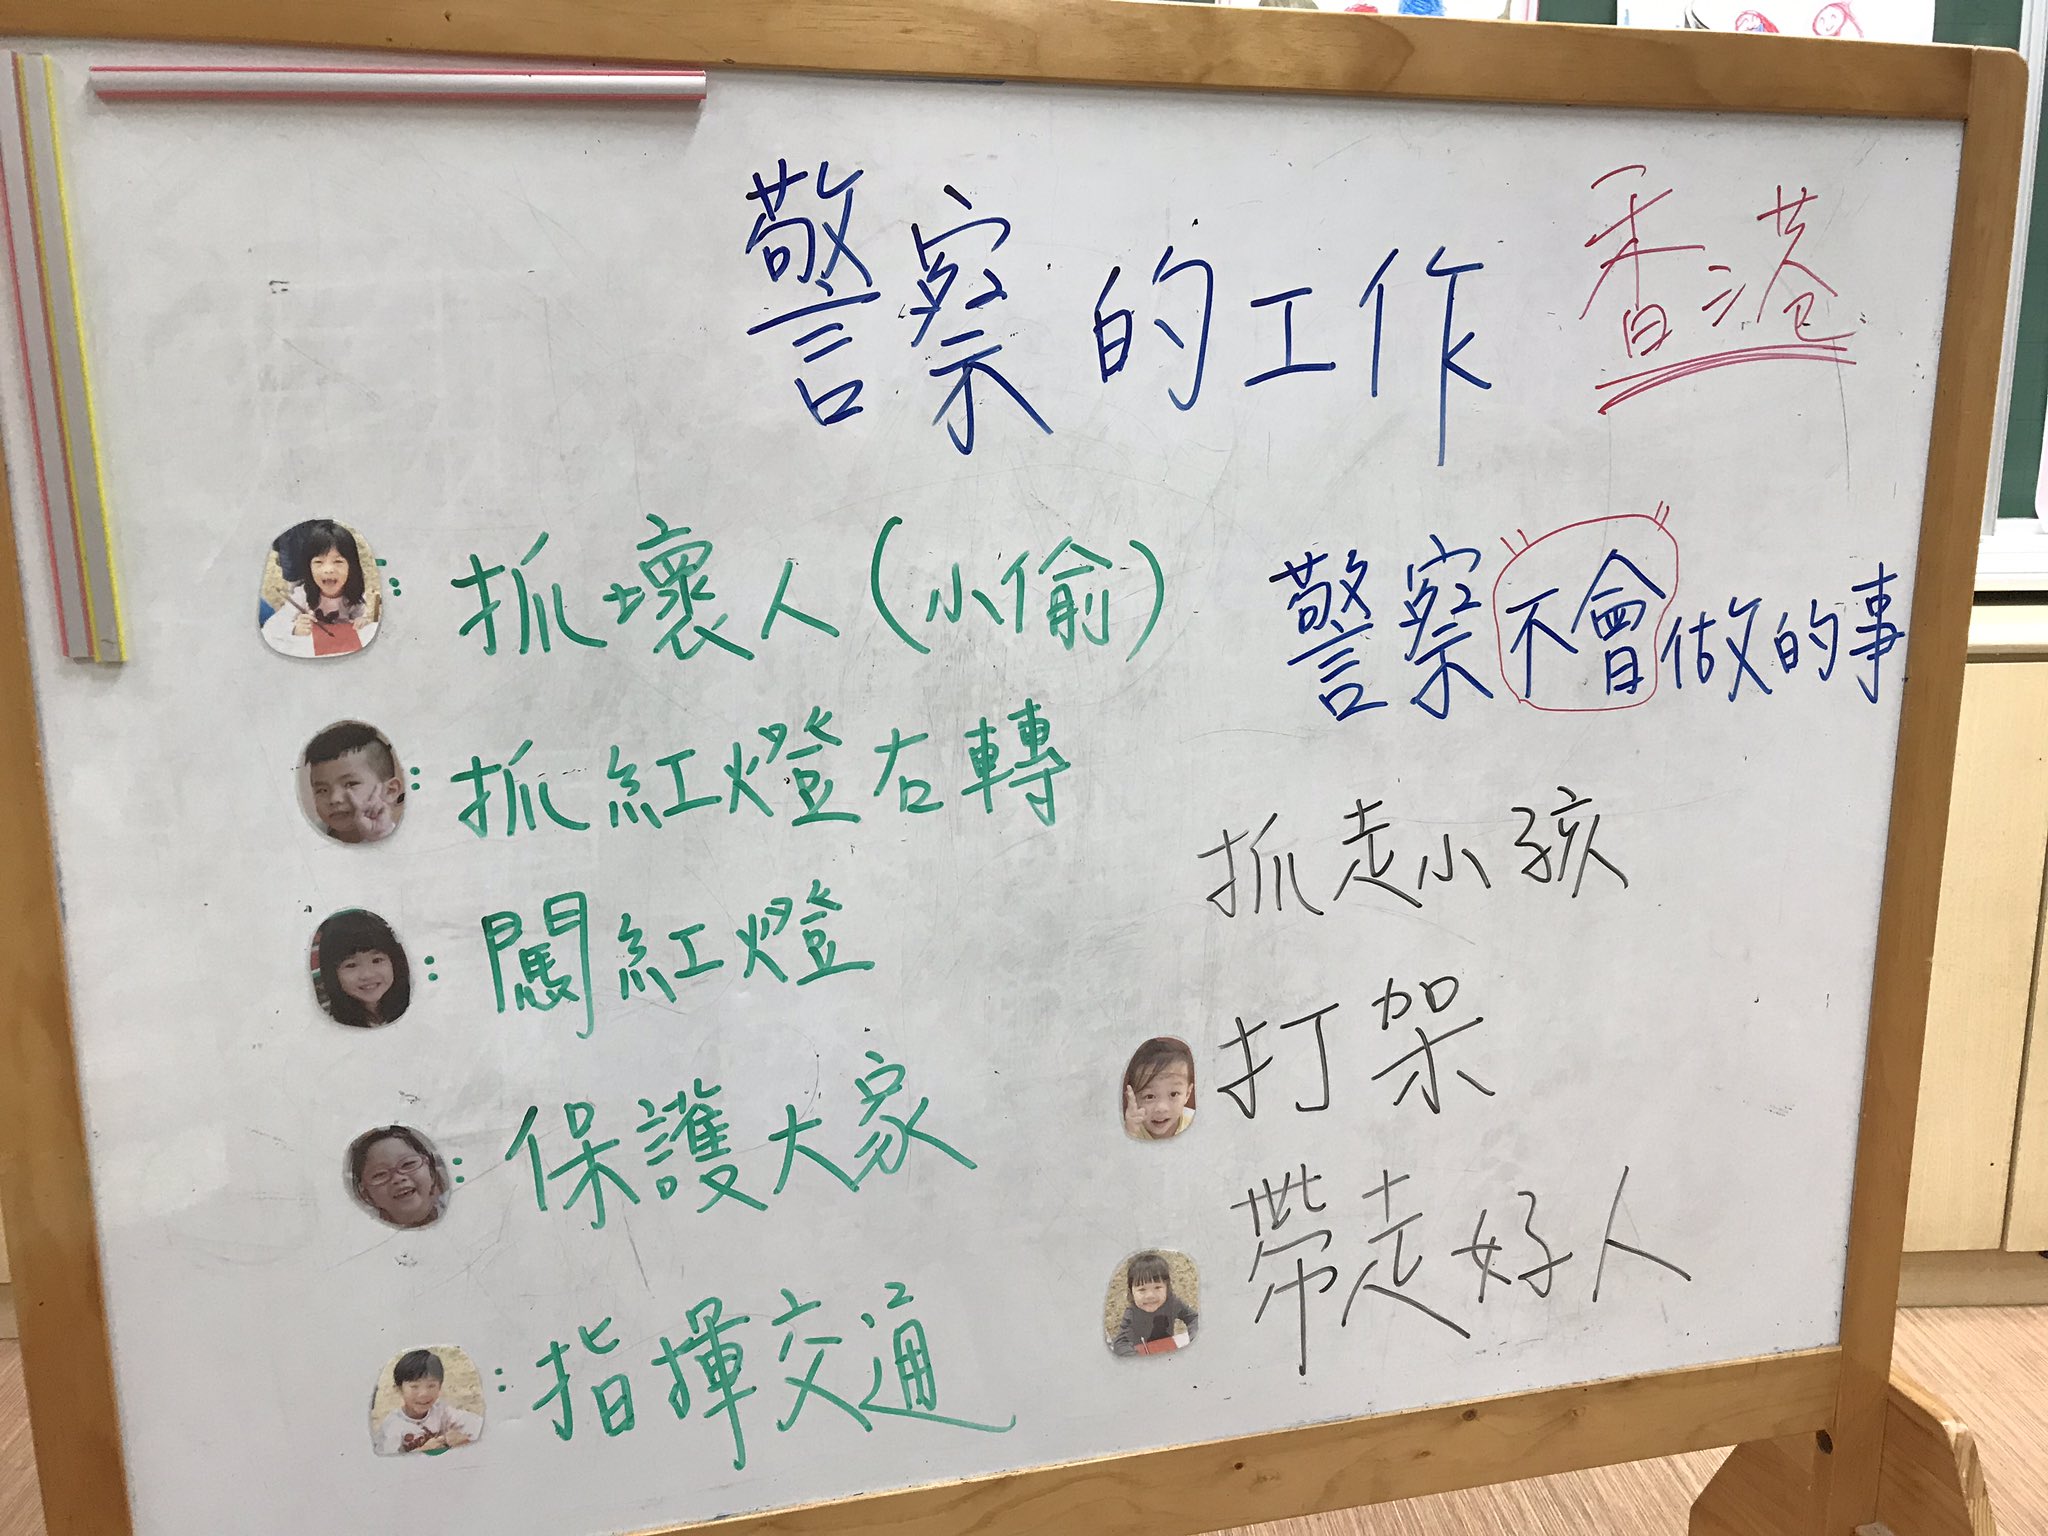 警察的工作
香港
:抓壞人(小偷)
:抓紅燈右轉
:闖紅燈
:保護大家
:指揮交通
警察不會做的事
抓走小孩
打架
帶走好人